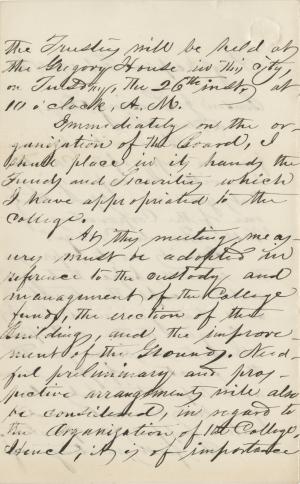 the Trustees will be held at
the Gregory House in this city,
on Tuesday, the 26th inst, at
10 o'clock, A. M.
Immediately on the or-
ganization of the Board, I
shall place in its hands the
Funds and Securities which
I have appropriated to the
College.
At this meeting meas-
ures must be adopted in
reference to the custody and
management of the College
funds, the erection of the
Building, and the improve-
ment of the Grounds. Need-
ful preliminary and pros-
pective arrangements will also
be considered, in regard to
the Organization of the College,
Hence, it is of importance